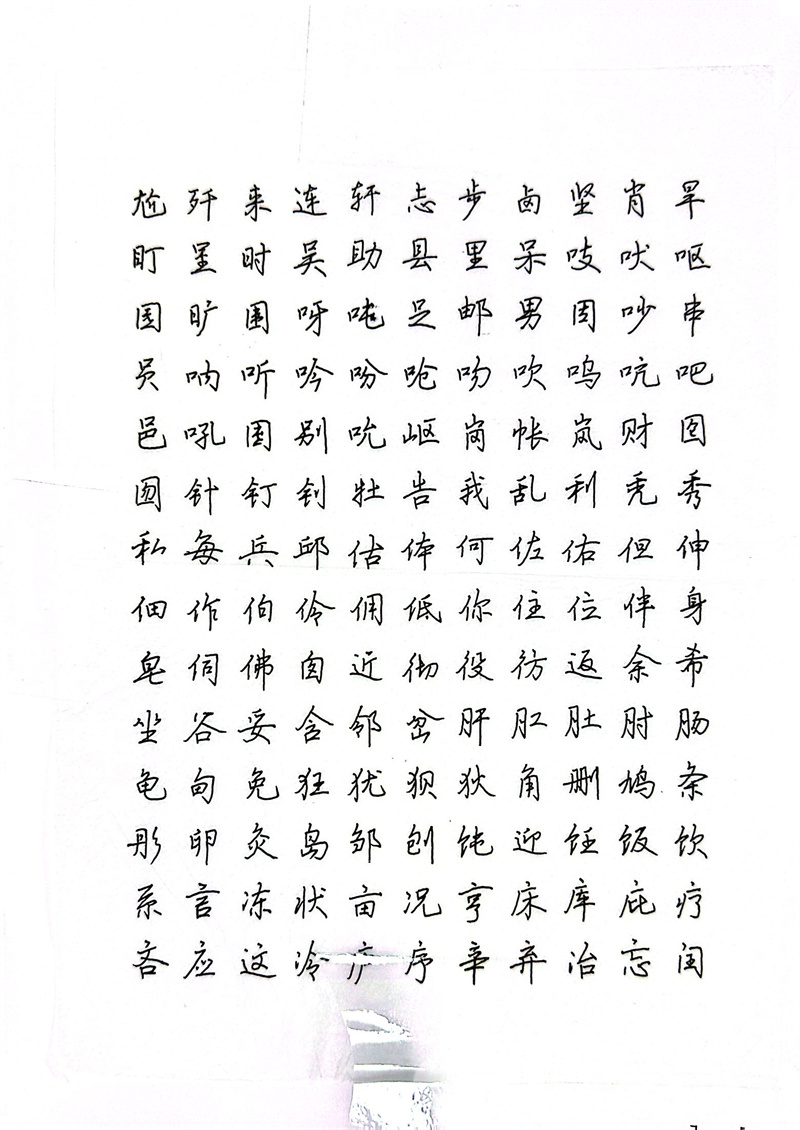 尬歼来连轩志步卤坚肖旱
盯呈时吴助县里呆吱吠呕
园旷围呀吨足邮男困吵串
员呐听吟吩呛吻吹呜吭吧
邑吼囤别吮岖岗帐岚财囵
囫针钉钊牡告我乱利秃秀
私每兵邱估体何佐佑但伸
佃作伯伶佣低你住位伴身
皂伺佛囱近彻役彷返余希
坐谷妥含邻岔肝肛肚肘肠
龟甸免狂犹狈狄角删鸠条
彤卵灸岛邹刨饨迎饪饭饮
系言冻状亩况亨床库庇疗
吝应这冷序辛弃冶忘闰